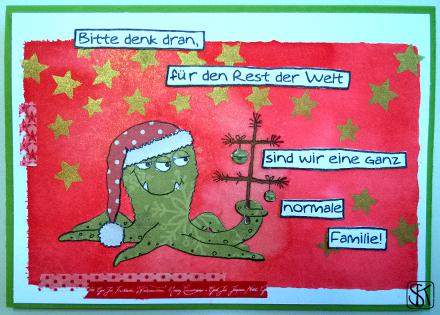 Bitte denk dran,
für den Rest der Welt
sind wir eine ganz
normale
Familie!